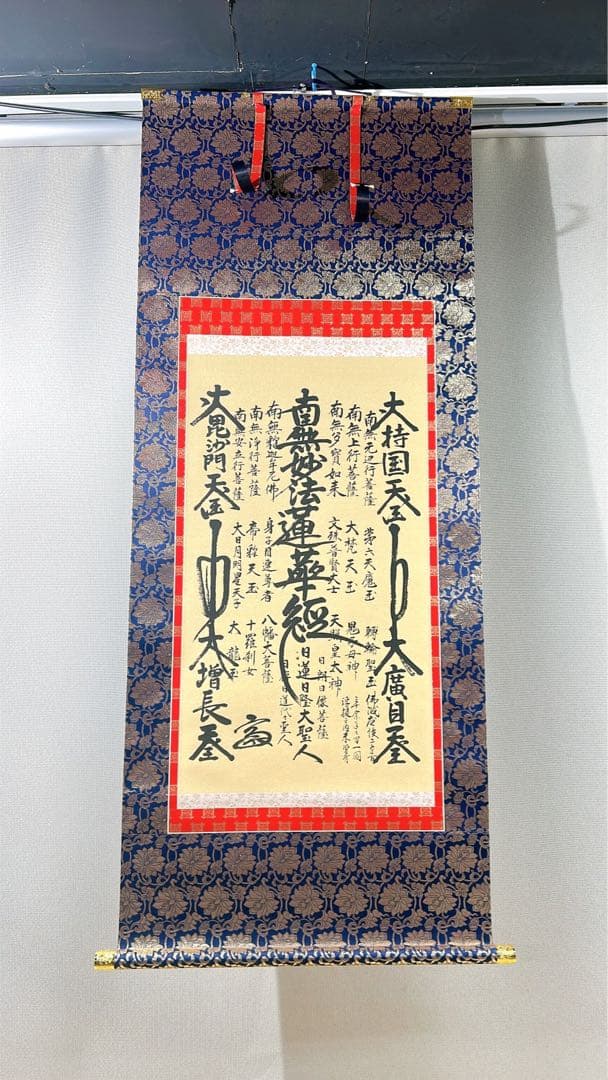 大持国天王
大廣目天王
南無无辺行菩薩
第六天魔王
轉輪聖王
南無上行菩薩
大梵天王
鬼子母神
南無多寶如来
文殊普賢大士
天照皇太神
南無妙法蓮華經
日蓮日隆大聖人
日興日像菩薩
南無釋迦牟尼佛
身子目連尊者
八幡大菩薩
南無浄行菩薩
帝釋天王
十羅刹女
南無安立行菩薩
大日月明星天子
大龍王
大毘沙門天王
大増長天王